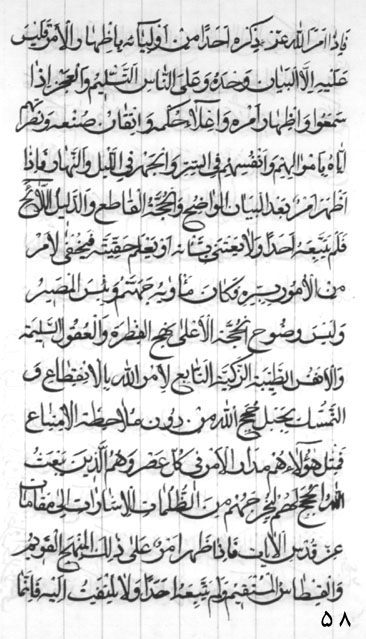 فاذا امر الله عز ذكره احدا من اوليائه باظهار الامر فليس
عليه الا البيان وحده وعلى الناس التسليم والعجز اذا
سمعوا واظهار امره واعلاء حكمه واتقان صنعه ونصرهم
اياه باموالهم وانفسهم في السر والجهر في الليل والنهار فاذا
اظهر امره بعد البيان الواضح والحجة القاطع والدليل اللائح
فلم يتبعه احدا ولا يعتنى بشانه او يعلم حقيته فيخفى لامر
من الامور سره وكان ماويه جهنم وبئس المصير
وليس وضوح الحجة الا على نهج الفطرة والعقول السليمة
والانفس الطيبة الزكية التابع لامر الله بالانقطاع و
التمسك بحبل حجج الله من دون ملاحظة الامتناع
فمثل هؤلاء هم مدار الامر في كل عصر وهم الذين يبعث
الله الحجج لهم ليخرجهم من الظلمات الاشارات الى مقامات
عز قدس الايات فاذا ظهر امره على ذلك المنهج القويم
والقسطاس المستقيم فلم يتبعه احدا ولا يلتفت اليه فانما
٥٨